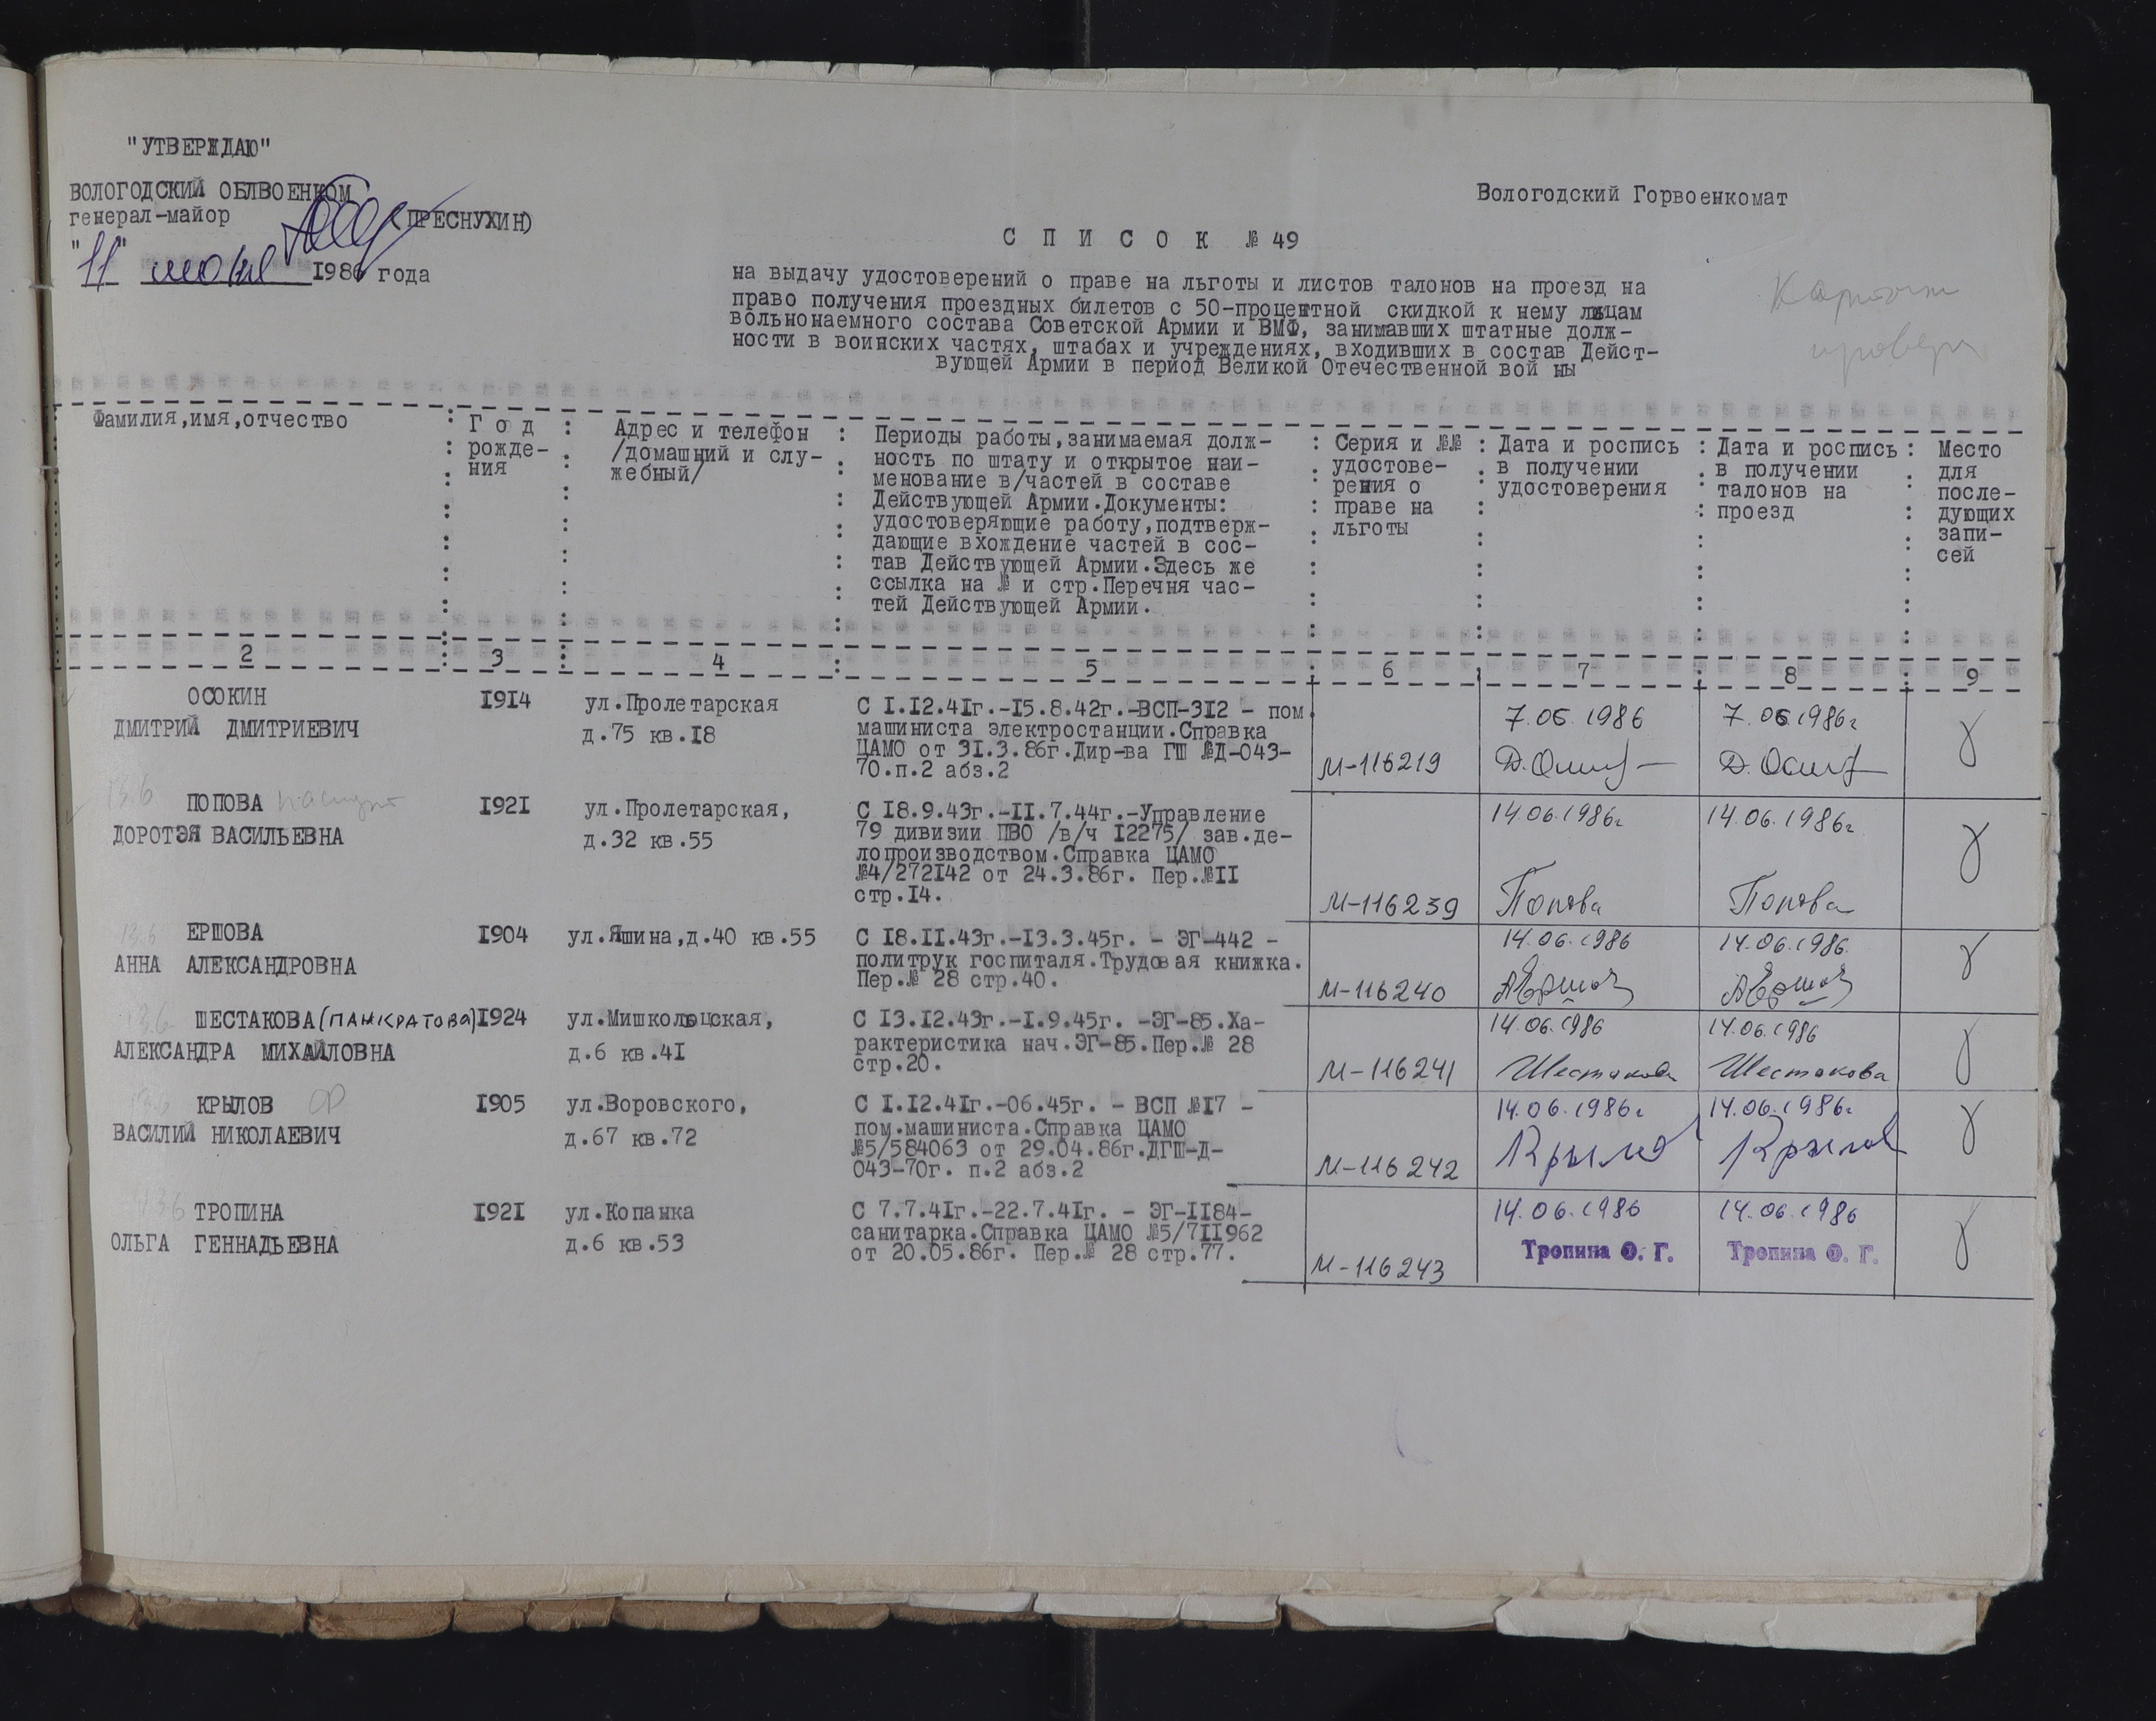 "УТВЕРЖДАЮ"
ВОЛОГОДСКИЙ ОБЛВОЕНКОМ
генерал-майор (ПРЕСНУХИН)
"11" июня 1986 года
Вологодский Горвоенкомат
С П И С О К № 49
на выдачу удостоверений о праве на льготы и листов талонов на проезд на
право получения проездных билетов с 50-процентной скидкой к нему лицам
вольнонаемного состава Советской Армии и ВМФ, занимавших штатные долж-
ности в воинских частях, штабах и учреждениях, входивших в состав Дейст-
вующей Армии в период Великой Отечественной вой ны
Карточки
провер
Фамилия,имя,отчество
Г о д
рожде-
ния
Адрес и телефон
/домашний и слу-
жебный/
Периоды работы,занимаемая долж-
ность по штату и открытое наи-
менование в/частей в составе
Действующей Армии.Документы:
удостоверяющие работу,подтверж-
дающие вхождение частей в сос-
тав Действующей Армии.Здесь же
ссылка на № и стр.Перечня час-
тей Действующей Армии.
Серия и №№
удостове-
рения о
праве на
льготы
Дата и роспись
в получении
удостоверения
Дата и роспись
в получении
талонов на
проезд
Место
для
после-
дующих
запи-
сей
2 3 4 5 6 7 8 9
ОСОКИН
ДМИТРИЙ ДМИТРИЕВИЧ
1914
ул.Пролетарская
д.75 кв.18
С 1.12.41г.-15.8.42г.-ВСП-312 - пом.
машиниста электростанции.Справка
ЦАМО от 31.3.86г.Дир-ва ГШ №Д-043-
70.п.2 абз.2
М-116219
7.06.1986
7.06.1986г
13.6
ПОПОВА паспорт
ДОРОТЭЯ ВАСИЛЬЕВНА
1921
ул.Пролетарская,
д.32 кв.55
С 18.9.43г.-11.7.44г.-Управление
79 дивизии ПВО /в/ч 12275/ зав.де-
лопроизводством.Справка ЦАМО
№4/272142 от 24.3.86г. Пер.№11
стр.14.
М-116239
14.06.1986г
Попова
14.06.1986г
Попова
13.6
ЕРШОВА
АННА АЛЕКСАНДРОВНА
1904
ул.Яшина,д.40 кв.55
С 18.11.43г.-13.3.45г. - ЭГ-442 -
политрук госпиталя.Трудовая книжка.
Пер.№ 28 стр.40.
М-116240
14.06.1986
АЕршов
14.06.1986
АЕршов
13.6
ШЕСТАКОВА(ПАНКРАТОВА)
АЛЕКСАНДРА МИХАЙЛОВНА
1924
ул.Мишкольцская,
д.6 кв.41
С 13.12.43г.-1.9.45г. -ЭГ-85.Ха-
рактеристика нач.ЭГ-85.Пер.№ 28
стр.20.
М-116241
14.06.1986
Шестакова
14.06.1986
Шестакова
13.6
КРЫЛОВ
ВАСИЛИЙ НИКОЛАЕВИЧ
1905
ул.Воровского,
д.67 кв.72
С 1.12.41г.-06.45г. - ВСП №17 -
пом.машиниста.Справка ЦАМО
№5/584063 от 29.04.86г.ДГШ-Д-
043-70г. п.2 абз.2
М-116242
14.06.1986г
Крылов
14.06.1986г
Крылов
13.6
ТРОПИНА
ОЛЬГА ГЕННАДЬЕВНА
1921
ул.Копанка
д.6 кв.53
С 7.7.41г.-22.7.41г. - ЭГ-1184-
санитарка.Справка ЦАМО №5/711962
от 20.05.86г. Пер.№ 28 стр.77.
М-116243
14.06.1986
Тропина О. Г.
14.06.1986
Тропина О. Г.